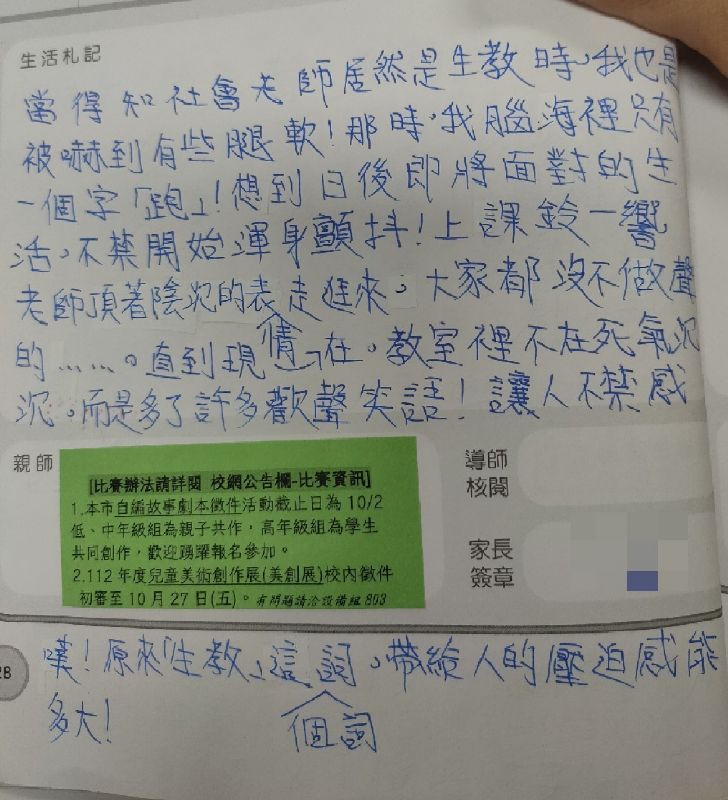 生活札記
當得知社會老師居然是生教時,我也是
被嚇到有些腿軟!那時,我腦海裡只有
一個字「跑」!想到日後即將面對的生
活,不禁開始渾身顫抖!上課鈴一響
老師頂著陰沉的表走進來。大家都沒不做聲
情
的……。直到現在,教室裡不在死氣沉
沉,而是多了許多歡聲笑語!讓人不禁感
親師
[比賽辦法請詳閱 校網公告欄-比賽資訊]
1.本市自編故事劇本徵件活動截止日為 10/2
低、中年級組為親子共作,高年級組為學生
共同創作,歡迎踴躍報名參加。
2.112 年度兒童美術創作展(美創展)校內徵件
初審至 10 月 27 日(五)。有問題請洽設備組 803
導師
核閱
家長
簽章
28
嘆!原來「生教」這詞,帶給人的壓迫感能
個詞
多大!